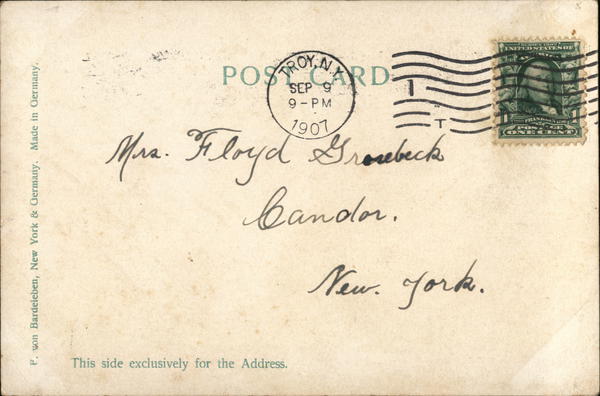 POST CARD
TROY, N.Y.
SEP 9
9-PM
1907
1
T
UNITED STATES OF
AMERICA
FRANKLIN
POSTAGE
ONE CENT
Mrs. Floyd Grosebeck
Candor.
New. York.
This side exclusively for the Address.
F. von Bardeleben, New York & Germany. Made in Germany.